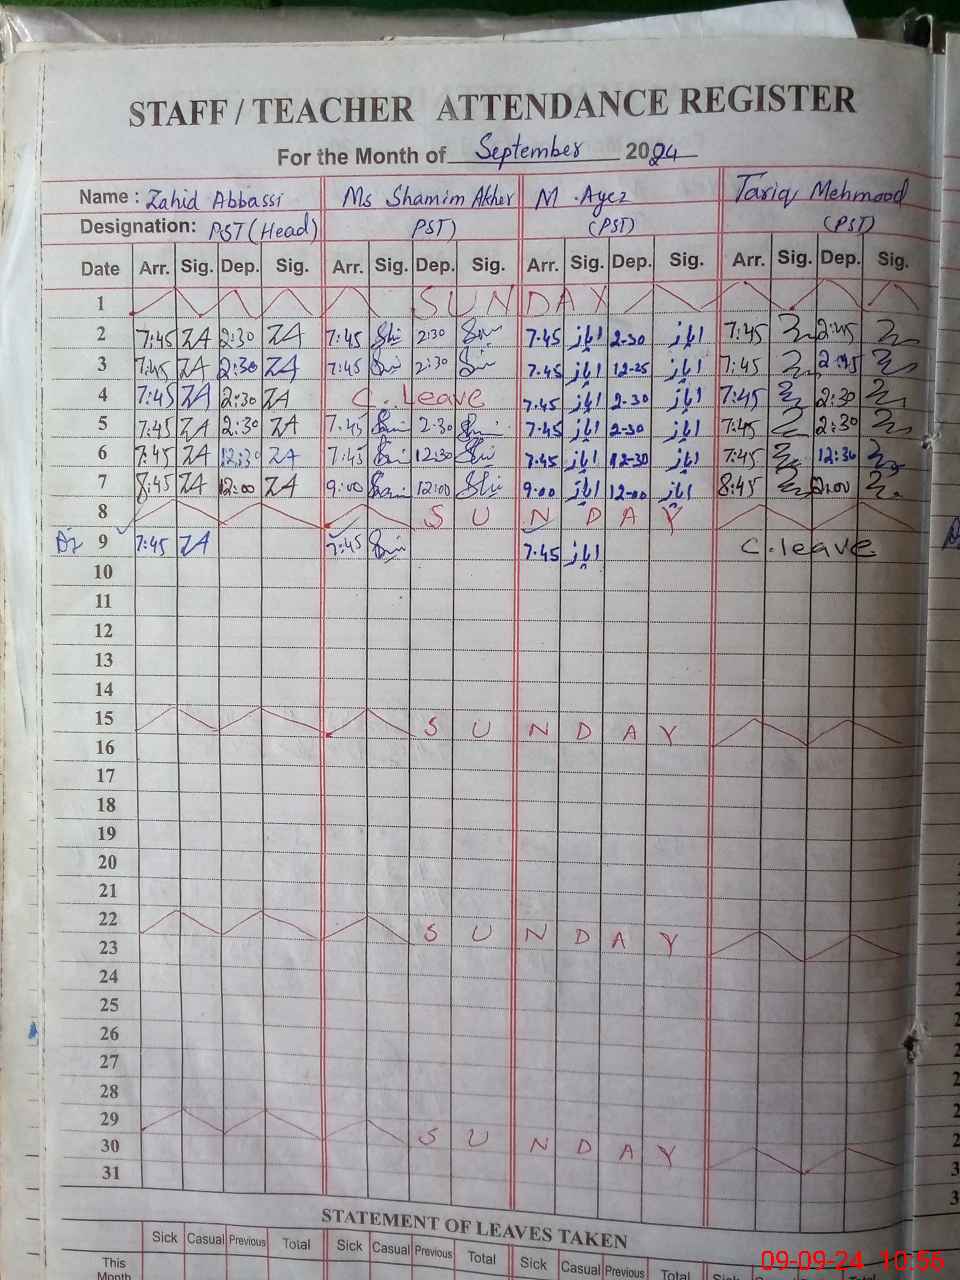 STAFF / TEACHER ATTENDANCE REGISTER
For the Month of September 2024
Name : Zahid Abbassi Ms Shamim Akher M . Ayez Tariq Mehmood
Designation: PST (Head) PST) (PST) (PST)
Date Arr. Sig. Dep. Sig. Arr. Sig. Dep. Sig. Arr. Sig. Dep. Sig. Arr. Sig. Dep. Sig.
1 SUNDAY
2 7:45 ZA 2:30 ZA 7:45 2:30 7.45 ایاز 2-30 ایاز 7:45 2:45
3 7:45 ZA 2:30 ZA 7:45 2:30 7.45 ایاز 12-25 ایاز 7:45 2:45
4 7:45 ZA 2:30 ZA C. Leave 7.45 ایاز 2-30 ایاز 7:45 2:30
5 7:45 ZA 2:30 ZA 7:45 2:30 7.45 ایاز 2-30 ایاز 7:45 2:30
6 7:45 ZA 12:30 ZA 7:45 12:30 7.45 ایاز 12-30 ایاز 7:45 12:30
7 8:45 ZA 12:00 ZA 9:00 12:00 9.00 ایاز 12-00 ایاز 8:45 12:00
8 S U N D A Y
9 7:45 ZA 7:45 7.45 ایاز C.leave
10
11
12
13
14
15 S U N D A Y
16
17
18
19
20
21
22 S U N D A Y
23
24
25
26
27
28
29 S U N D A Y
30
31
STATEMENT OF LEAVES TAKEN
Sick Casual Previous Total Sick Casual Previous Total Sick Casual Previous Total
This Month
09-09-24 10:56